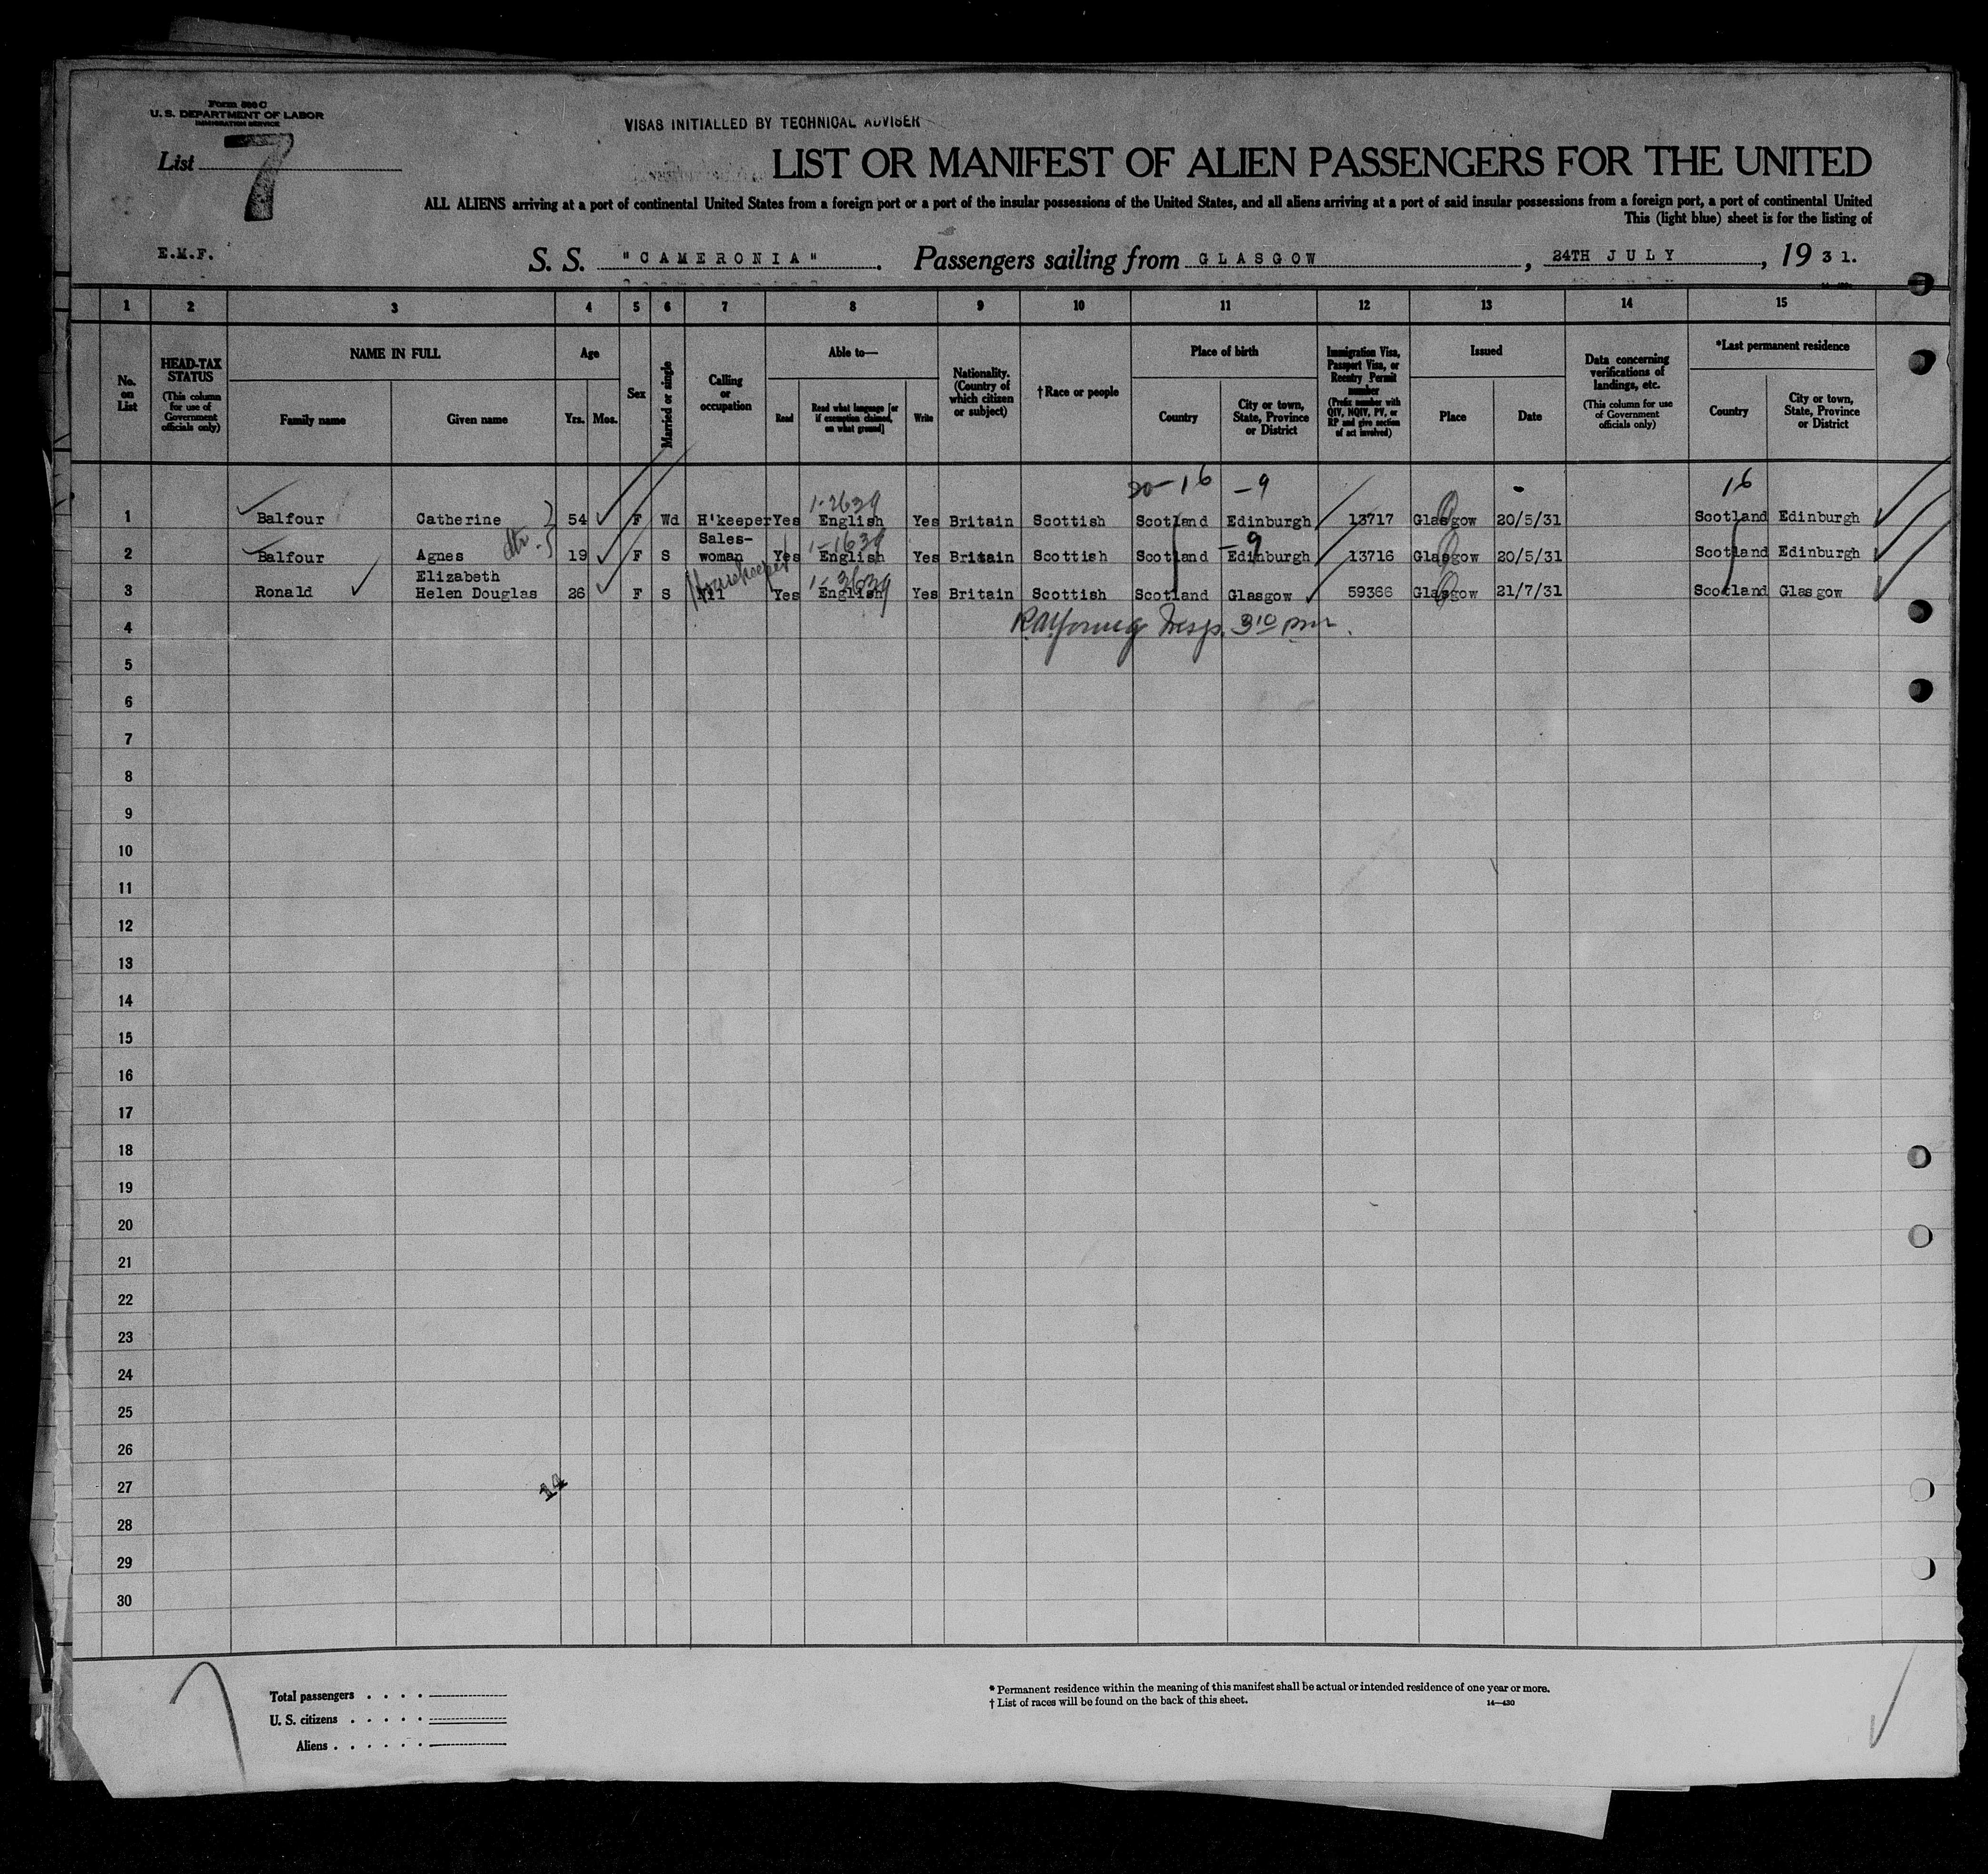 Form 500 C
U. S. DEPARTMENT OF LABOR
IMMIGRATION SERVICE
VISAS INITIALLED BY TECHNICAL ADVISER
List 7
LIST OR MANIFEST OF ALIEN PASSENGERS FOR THE UNITED
ALL ALIENS arriving at a port of continental United States from a foreign port or a port of the insular possessions of the United States, and all aliens arriving at a port of said insular possessions from a foreign port, a port of continental United
This (light blue) sheet is for the listing of
E.M.F.
S. S. "CAMERONIA". Passengers sailing from GLASGOW, 24TH JULY, 19 31.
1 2 3 4 5 6 7 8 9 10 11 12 13 14 15
No. on List
HEAD-TAX STATUS
(This column for use of Government officials only)
NAME IN FULL
Family name Given name
Age
Yrs. Mos.
Sex
Married or single
Calling or occupation
Able to—
Read Read what language [or if exemption claimed, on what ground] Write
Nationality. (Country of which citizen or subject)
† Race or people
Place of birth
Country City or town, State, Province or District
Immigration Visa, Passport Visa, or Reentry Permit number
(Prefix number with QIV, NQIV, PV, or RP and give section of act involved)
Issued
Place Date
Data concerning verifications of landings, etc.
(This column for use of Government officials only)
*Last permanent residence
Country City or town, State, Province or District
20-16 -9 16
1-2639
1 Balfour Catherine 54 F Wd H'keeper Yes English Yes Britain Scottish Scotland Edinburgh 13717 Glasgow 20/5/31 Scotland Edinburgh
dtr. Sales- 1-1639 -9
2 Balfour Agnes 19 F S woman Yes English Yes Britain Scottish Scotland Edinburgh 13716 Glasgow 20/5/31 Scotland Edinburgh
Elizabeth Housekeeper 1-3639
3 Ronald Helen Douglas 26 F S Nil Yes English Yes Britain Scottish Scotland Glasgow 59366 Glasgow 21/7/31 Scotland Glasgow
4 Young Insp. 3 10 pm.
5
6
7
8
9
10
11
12
13
14
15
16
17
18
19
20
21
22
23
24
25
26
27
14
28
29
30
Total passengers
U. S. citizens
Aliens
* Permanent residence within the meaning of this manifest shall be actual or intended residence of one year or more.
† List of races will be found on the back of this sheet. 14—430